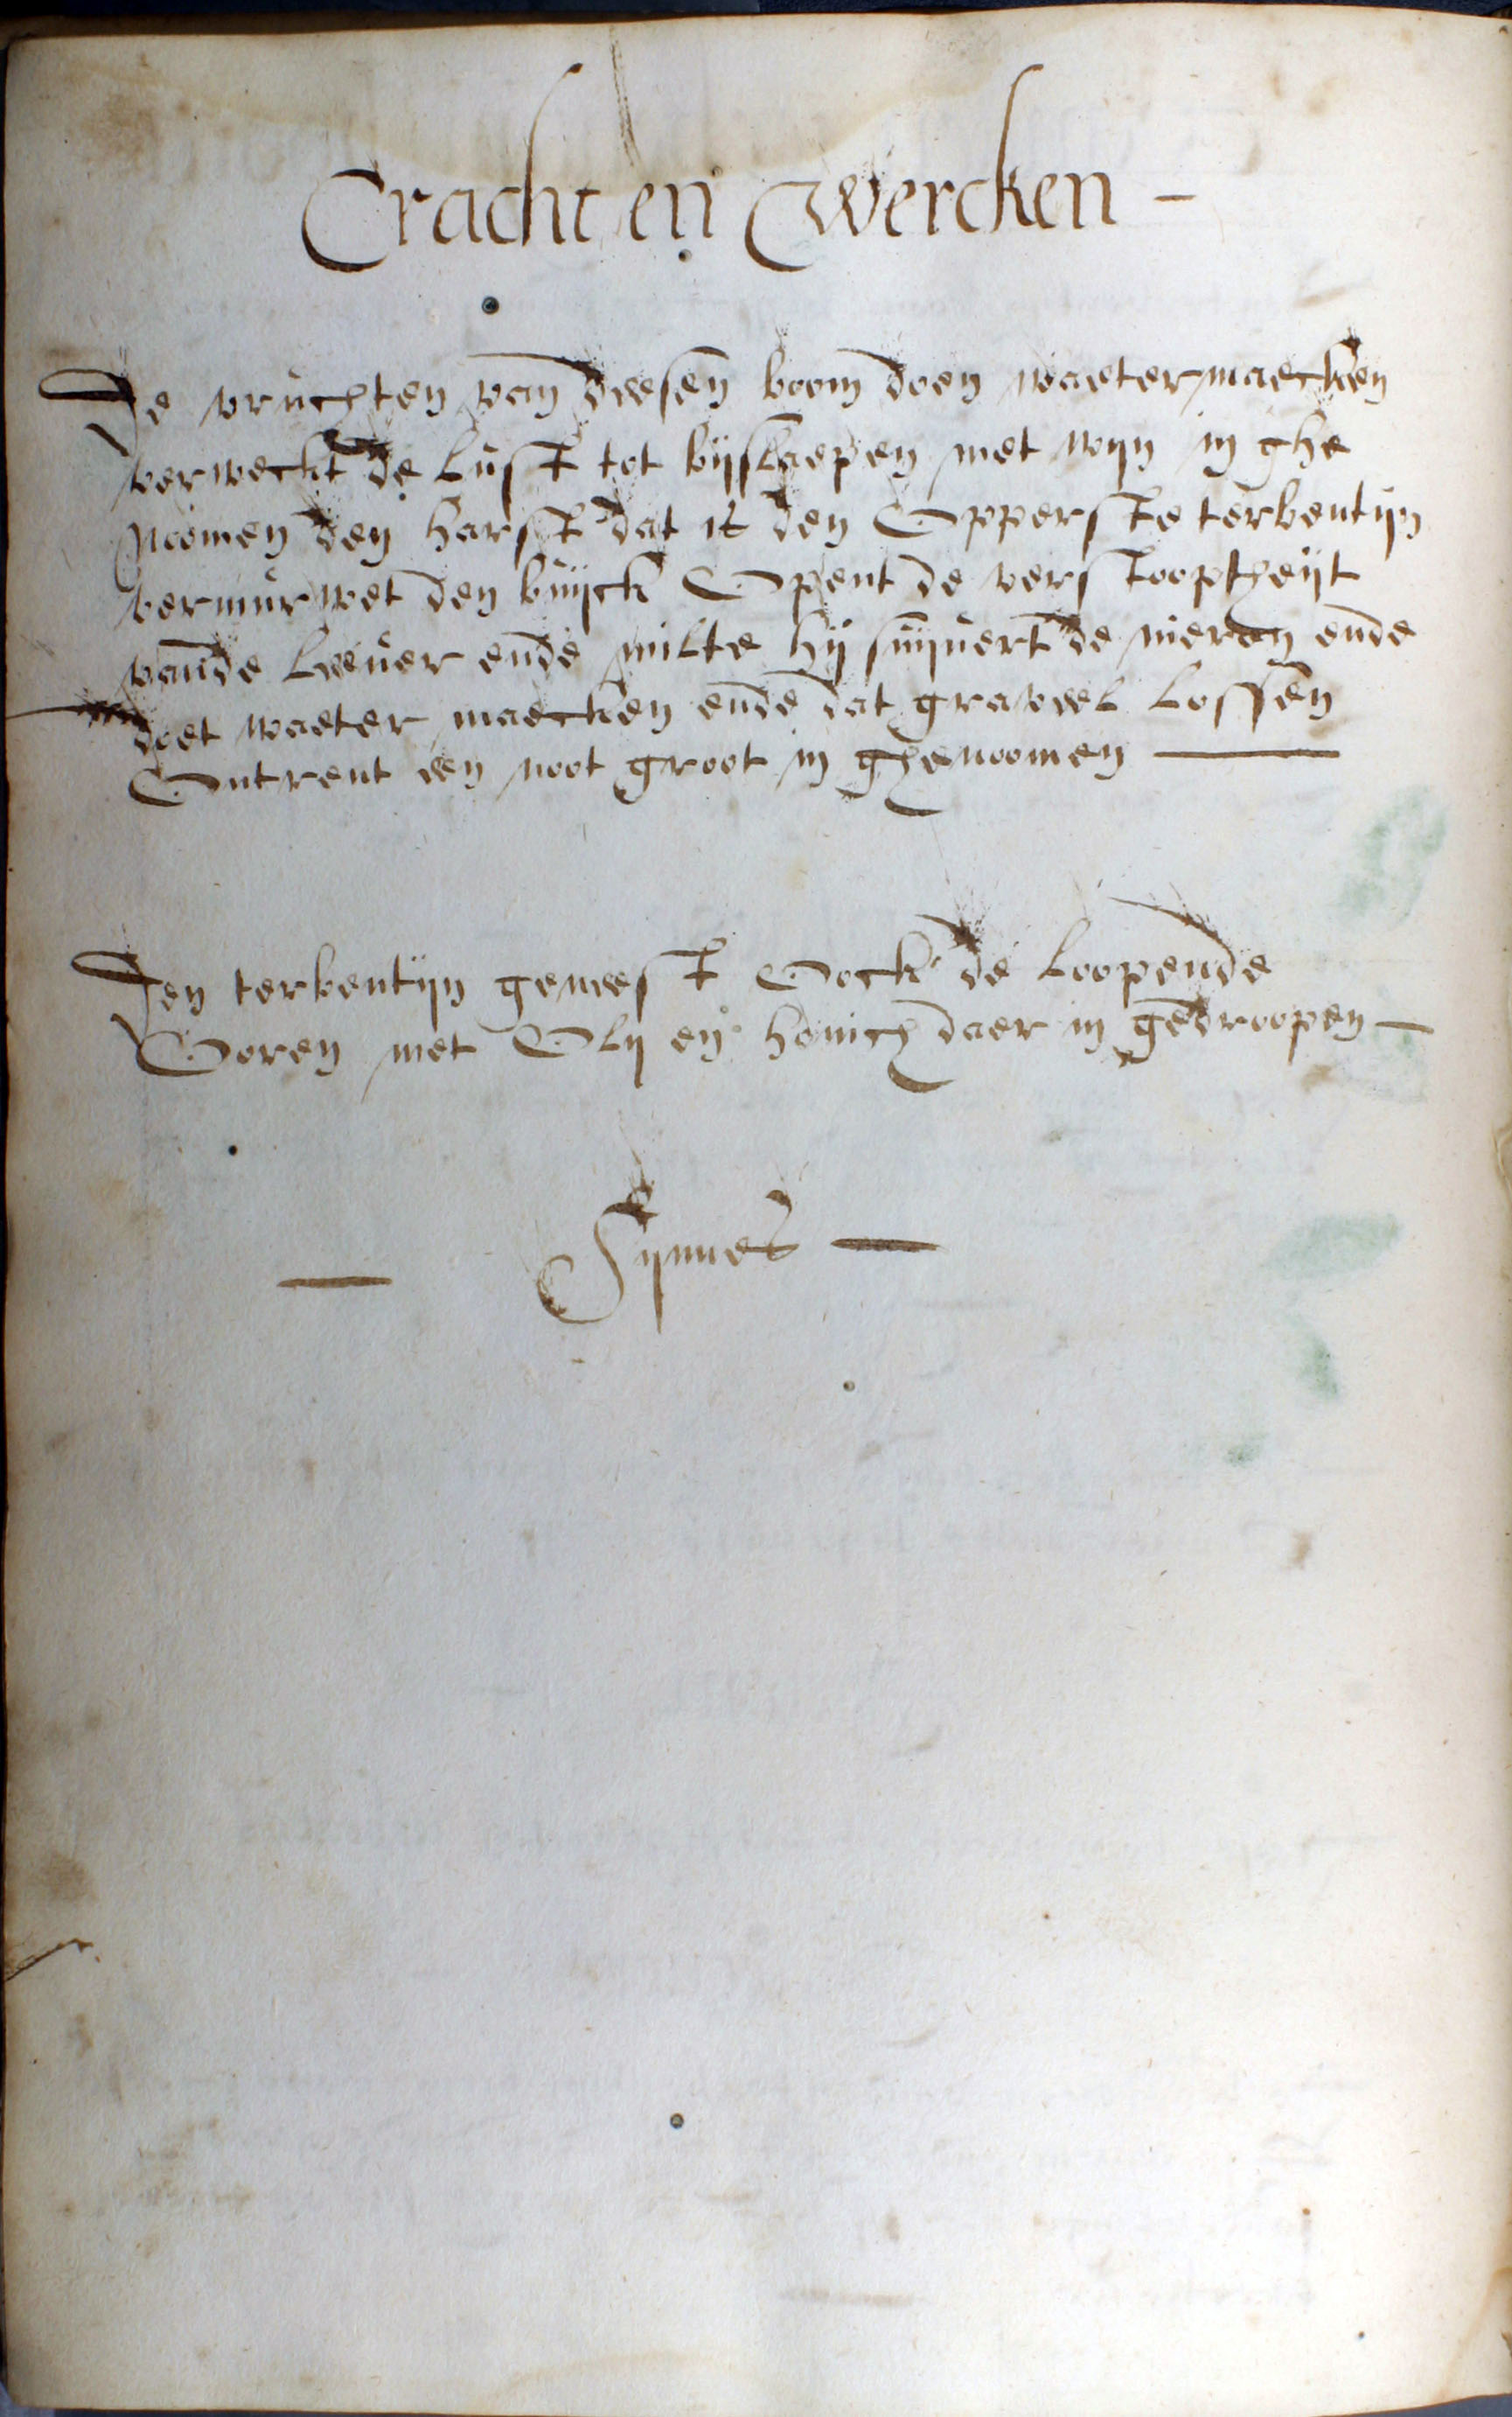 Cracht en Wercken -
De vruchten van deesen boom doen waeter maecken
verweckt de lust tot bijslaepen met wijn in ghe
noomen den harst dat is den Oppersте terbentijn
vermurwet den buijck Opent de verstooptheijt
vande leever ende milte hij suijvert de nieren ende
doet waeter maecken ende dat graveel lossen
Ontrent een noot groot in ghenoomen —
Den terbentijn geneest Oock de loopende
Ooren met Olij en honich daer in gedroopen —
— Fijnnes —